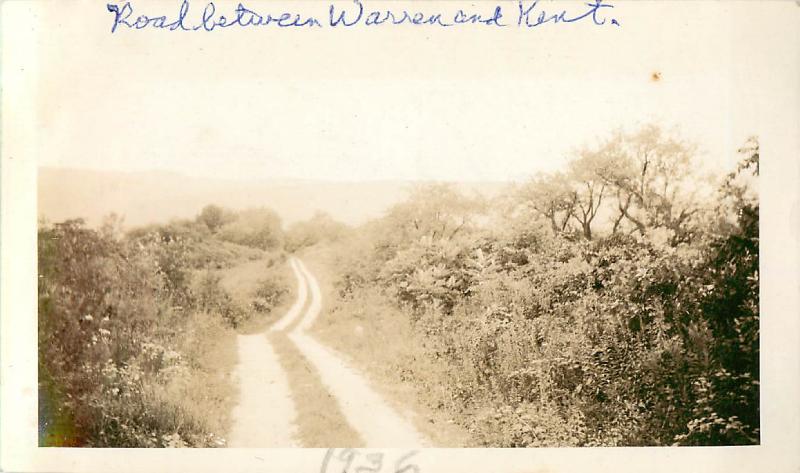 Road between Warren and Kent.
1936